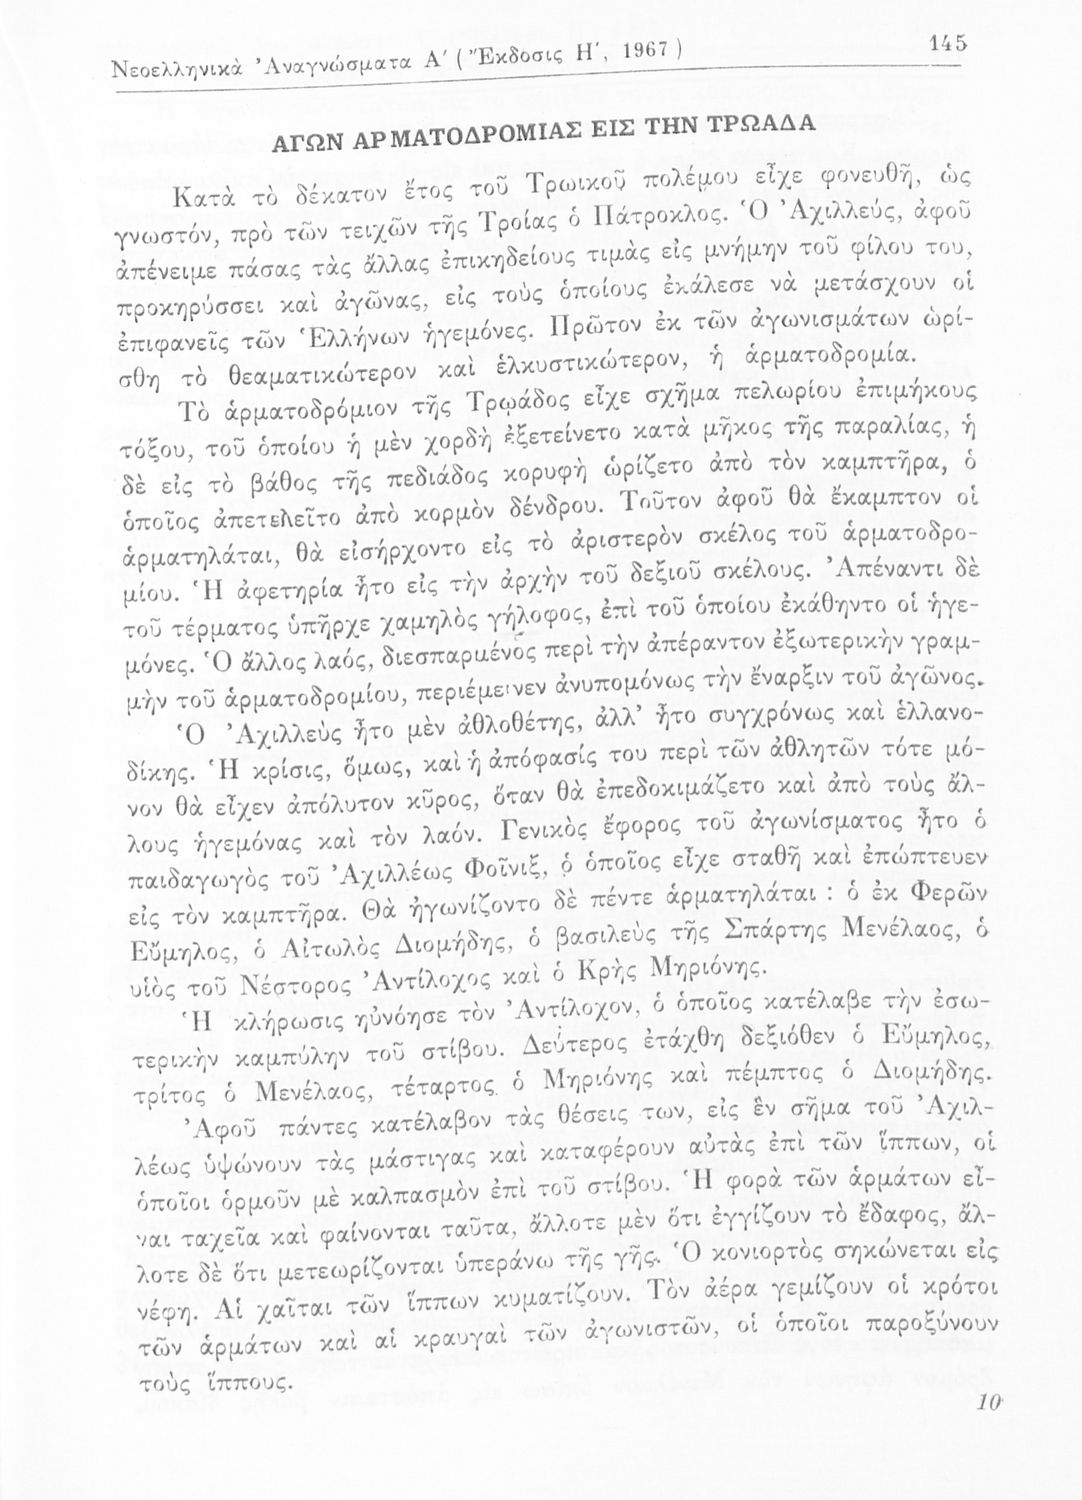 Νεοελληνικὰ Ἀναγνώσματα Α΄ ( Ἔκδοσις Η΄, 1967 )
145
ΑΓΩΝ ΑΡΜΑΤΟΔΡΟΜΙΑΣ ΕΙΣ ΤΗΝ ΤΡΩΑΔΑ
Κατὰ τὸ δέκατον ἔτος τοῦ Τρωικοῦ πολέμου εἶχε φονευθῆ, ὡς
γνωστόν, πρὸ τῶν τειχῶν τῆς Τροίας ὁ Πάτροκλος. Ὁ Ἀχιλλεύς, ἀφοῦ
ἀπένειμε πάσας τὰς ἄλλας ἐπικηδείους τιμὰς εἰς μνήμην τοῦ φίλου του,
προκηρύσσει καὶ ἀγῶνας, εἰς τοὺς ὁποίους ἐκάλεσε νὰ μετάσχουν οἱ
ἐπιφανεῖς τῶν Ἑλλήνων ἡγεμόνες. Πρῶτον ἐκ τῶν ἀγωνισμάτων ὡρί-
σθη τὸ θεαματικώτερον καὶ ἑλκυστικώτερον, ἡ ἁρματοδρομία.
Τὸ ἁρματοδρόμιον τῆς Τρῳάδος εἶχε σχῆμα πελωρίου ἐπιμήκους
τόξου, τοῦ ὁποίου ἡ μὲν χορδὴ ἐξετείνετο κατὰ μῆκος τῆς παραλίας, ἡ
δὲ εἰς τὸ βάθος τῆς πεδιάδος κορυφὴ ὡρίζετο ἀπὸ τὸν καμπτῆρα, ὁ
ὁποῖος ἀπετελεῖτο ἀπὸ κορμὸν δένδρου. Τοῦτον ἀφοῦ θὰ ἔκαμπτον οἱ
ἁρματηλάται, θὰ εἰσήρχοντο εἰς τὸ ἀριστερὸν σκέλος τοῦ ἁρματοδρο-
μίου. Ἡ ἀφετηρία ἦτο εἰς τὴν ἀρχὴν τοῦ δεξιοῦ σκέλους. Ἀπέναντι δὲ
τοῦ τέρματος ὑπῆρχε χαμηλὸς γήλοφος, ἐπὶ τοῦ ὁποίου ἐκάθηντο οἱ ἡγε-
μόνες. Ὁ ἄλλος λαός, διεσπαρμένος περὶ τὴν ἀπέραντον ἐξωτερικὴν γραμ-
μὴν τοῦ ἁρματοδρομίου, περιέμεινεν ἀνυπομόνως τὴν ἔναρξιν τοῦ ἀγῶνος.
Ὁ Ἀχιλλεὺς ἦτο μὲν ἀθλοθέτης, ἀλλ’ ἦτο συγχρόνως καὶ ἑλλανο-
δίκης. Ἡ κρίσις, ὅμως, καὶ ἡ ἀπόφασίς του περὶ τῶν ἀθλητῶν τότε μό-
νον θὰ εἶχεν ἀπόλυτον κῦρος, ὅταν θὰ ἐπεδοκιμάζετο καὶ ἀπὸ τοὺς ἄλ-
λους ἡγεμόνας καὶ τὸν λαόν. Γενικὸς ἔφορος τοῦ ἀγωνίσματος ἦτο ὁ
παιδαγωγὸς τοῦ Ἀχιλλέως Φοῖνιξ, ὁ ὁποῖος εἶχε σταθῆ καὶ ἐπώπτευεν
εἰς τὸν καμπτῆρα. Θὰ ἠγωνίζοντο δὲ πέντε ἁρματηλάται : ὁ ἐκ Φερῶν
Εὔμηλος, ὁ Αἰτωλὸς Διομήδης, ὁ βασιλεὺς τῆς Σπάρτης Μενέλαος, ὁ
υἱὸς τοῦ Νέστορος Ἀντίλοχος καὶ ὁ Κρὴς Μηριόνης.
Ἡ κλήρωσις ηὐνόησε τὸν Ἀντίλοχον, ὁ ὁποῖος κατέλαβε τὴν ἐσω-
τερικὴν καμπύλην τοῦ στίβου. Δεύτερος ἐτάχθη δεξιόθεν ὁ Εὔμηλος,
τρίτος ὁ Μενέλαος, τέταρτος ὁ Μηριόνης καὶ πέμπτος ὁ Διομήδης.
Ἀφοῦ πάντες κατέλαβον τὰς θέσεις των, εἰς ἓν σῆμα τοῦ Ἀχιλ-
λέως ὑψώνουν τὰς μάστιγας καὶ καταφέρουν αὐτὰς ἐπὶ τῶν ἵππων, οἱ
ὁποῖοι ὁρμοῦν μὲ καλπασμὸν ἐπὶ τοῦ στίβου. Ἡ φορὰ τῶν ἁρμάτων εἶ-
ναι ταχεῖα καὶ φαίνονται ταῦτα, ἄλλοτε μὲν ὅτι ἐγγίζουν τὸ ἔδαφος, ἄλ-
λοτε δὲ ὅτι μετεωρίζονται ὑπεράνω τῆς γῆς. Ὁ κονιορτὸς σηκώνεται εἰς
νέφη. Αἱ χαῖται τῶν ἵππων κυματίζουν. Τὸν ἀέρα γεμίζουν οἱ κρότοι
τῶν ἁρμάτων καὶ αἱ κραυγαὶ τῶν ἀγωνιστῶν, οἱ ὁποῖοι παροξύνουν
τοὺς ἵππους.
10